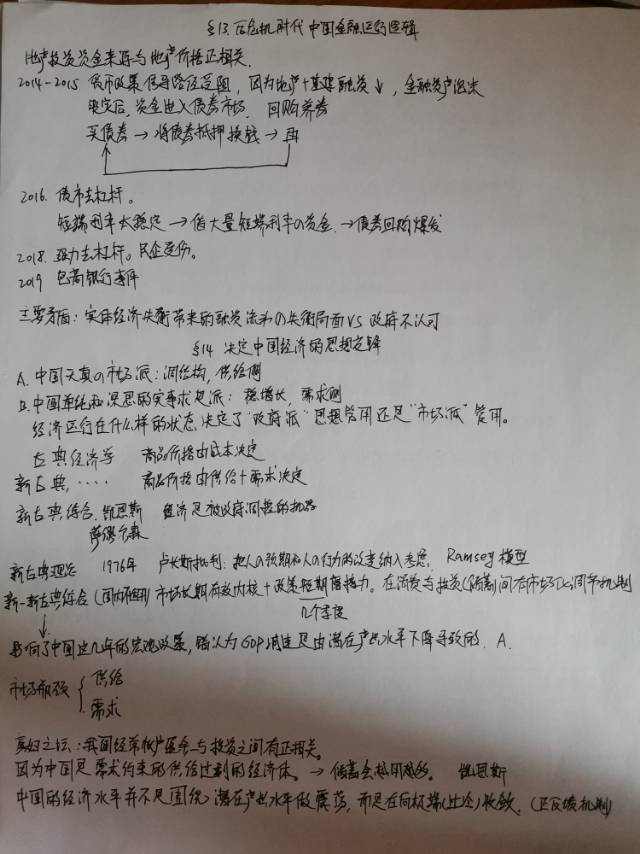 §13. 后危机时代中国金融运行逻辑
地产投资资金来源与地产价格正相关.
2014-2015 货币政策传导路径受阻, 因为地产+基建融资↓, 金融资产
后, 资金进入债券市场. 回购养券
买债券→将债券抵押换钱→再
2016. 债市去杠杆。
短端利率太稳定→借大量短端利率の资金.→债券回购爆发
2018. 强力去杠杆。民企受伤。
2019 包商银行事件
主要矛盾: 实体经济失衡带来的融资流动の失衡局面VS 政府不认可
§14 决定中国经济的思想逻辑
A. 中国天真の市场派: 调结构, 供给侧
B. 中国单纯和深思的实需求是派: 稳增长, 需求侧
经济运行在什么样的状态, 决定了"政府派"思想管用还是"市场派"管用。
古典经济学 商品价格由成本决定
新古典, ···· 商品价格由供给+需求决定
新古典综合. 凯恩斯 经济是被政府调控的机器
萨缪尔森
新古典理论 1976年 卢卡斯批判: 把人の预期和人の行为的改变纳入考虑. Ramsey 模型
新-新古典综合 (国内使用) 市场长期有效内核+政策短期有接力. 在消费与投资(储蓄)间有市场化调节机制
几个季度
影响了中国这几年的宏观政策, 错认为GDP减速是由潜在产出水平下降导致的. A.
市场瓶颈 { 供给
需求
: 我国经常帐户盈余与投资之间有正相关。
因为中国是需求约束的供给过剩的经济体。→储蓄会越用越多。 凯恩斯
中国的经济水平并不是围绕潜在产出水平做震荡, 而是在向极端(过冷)收敛. (正反馈机制)